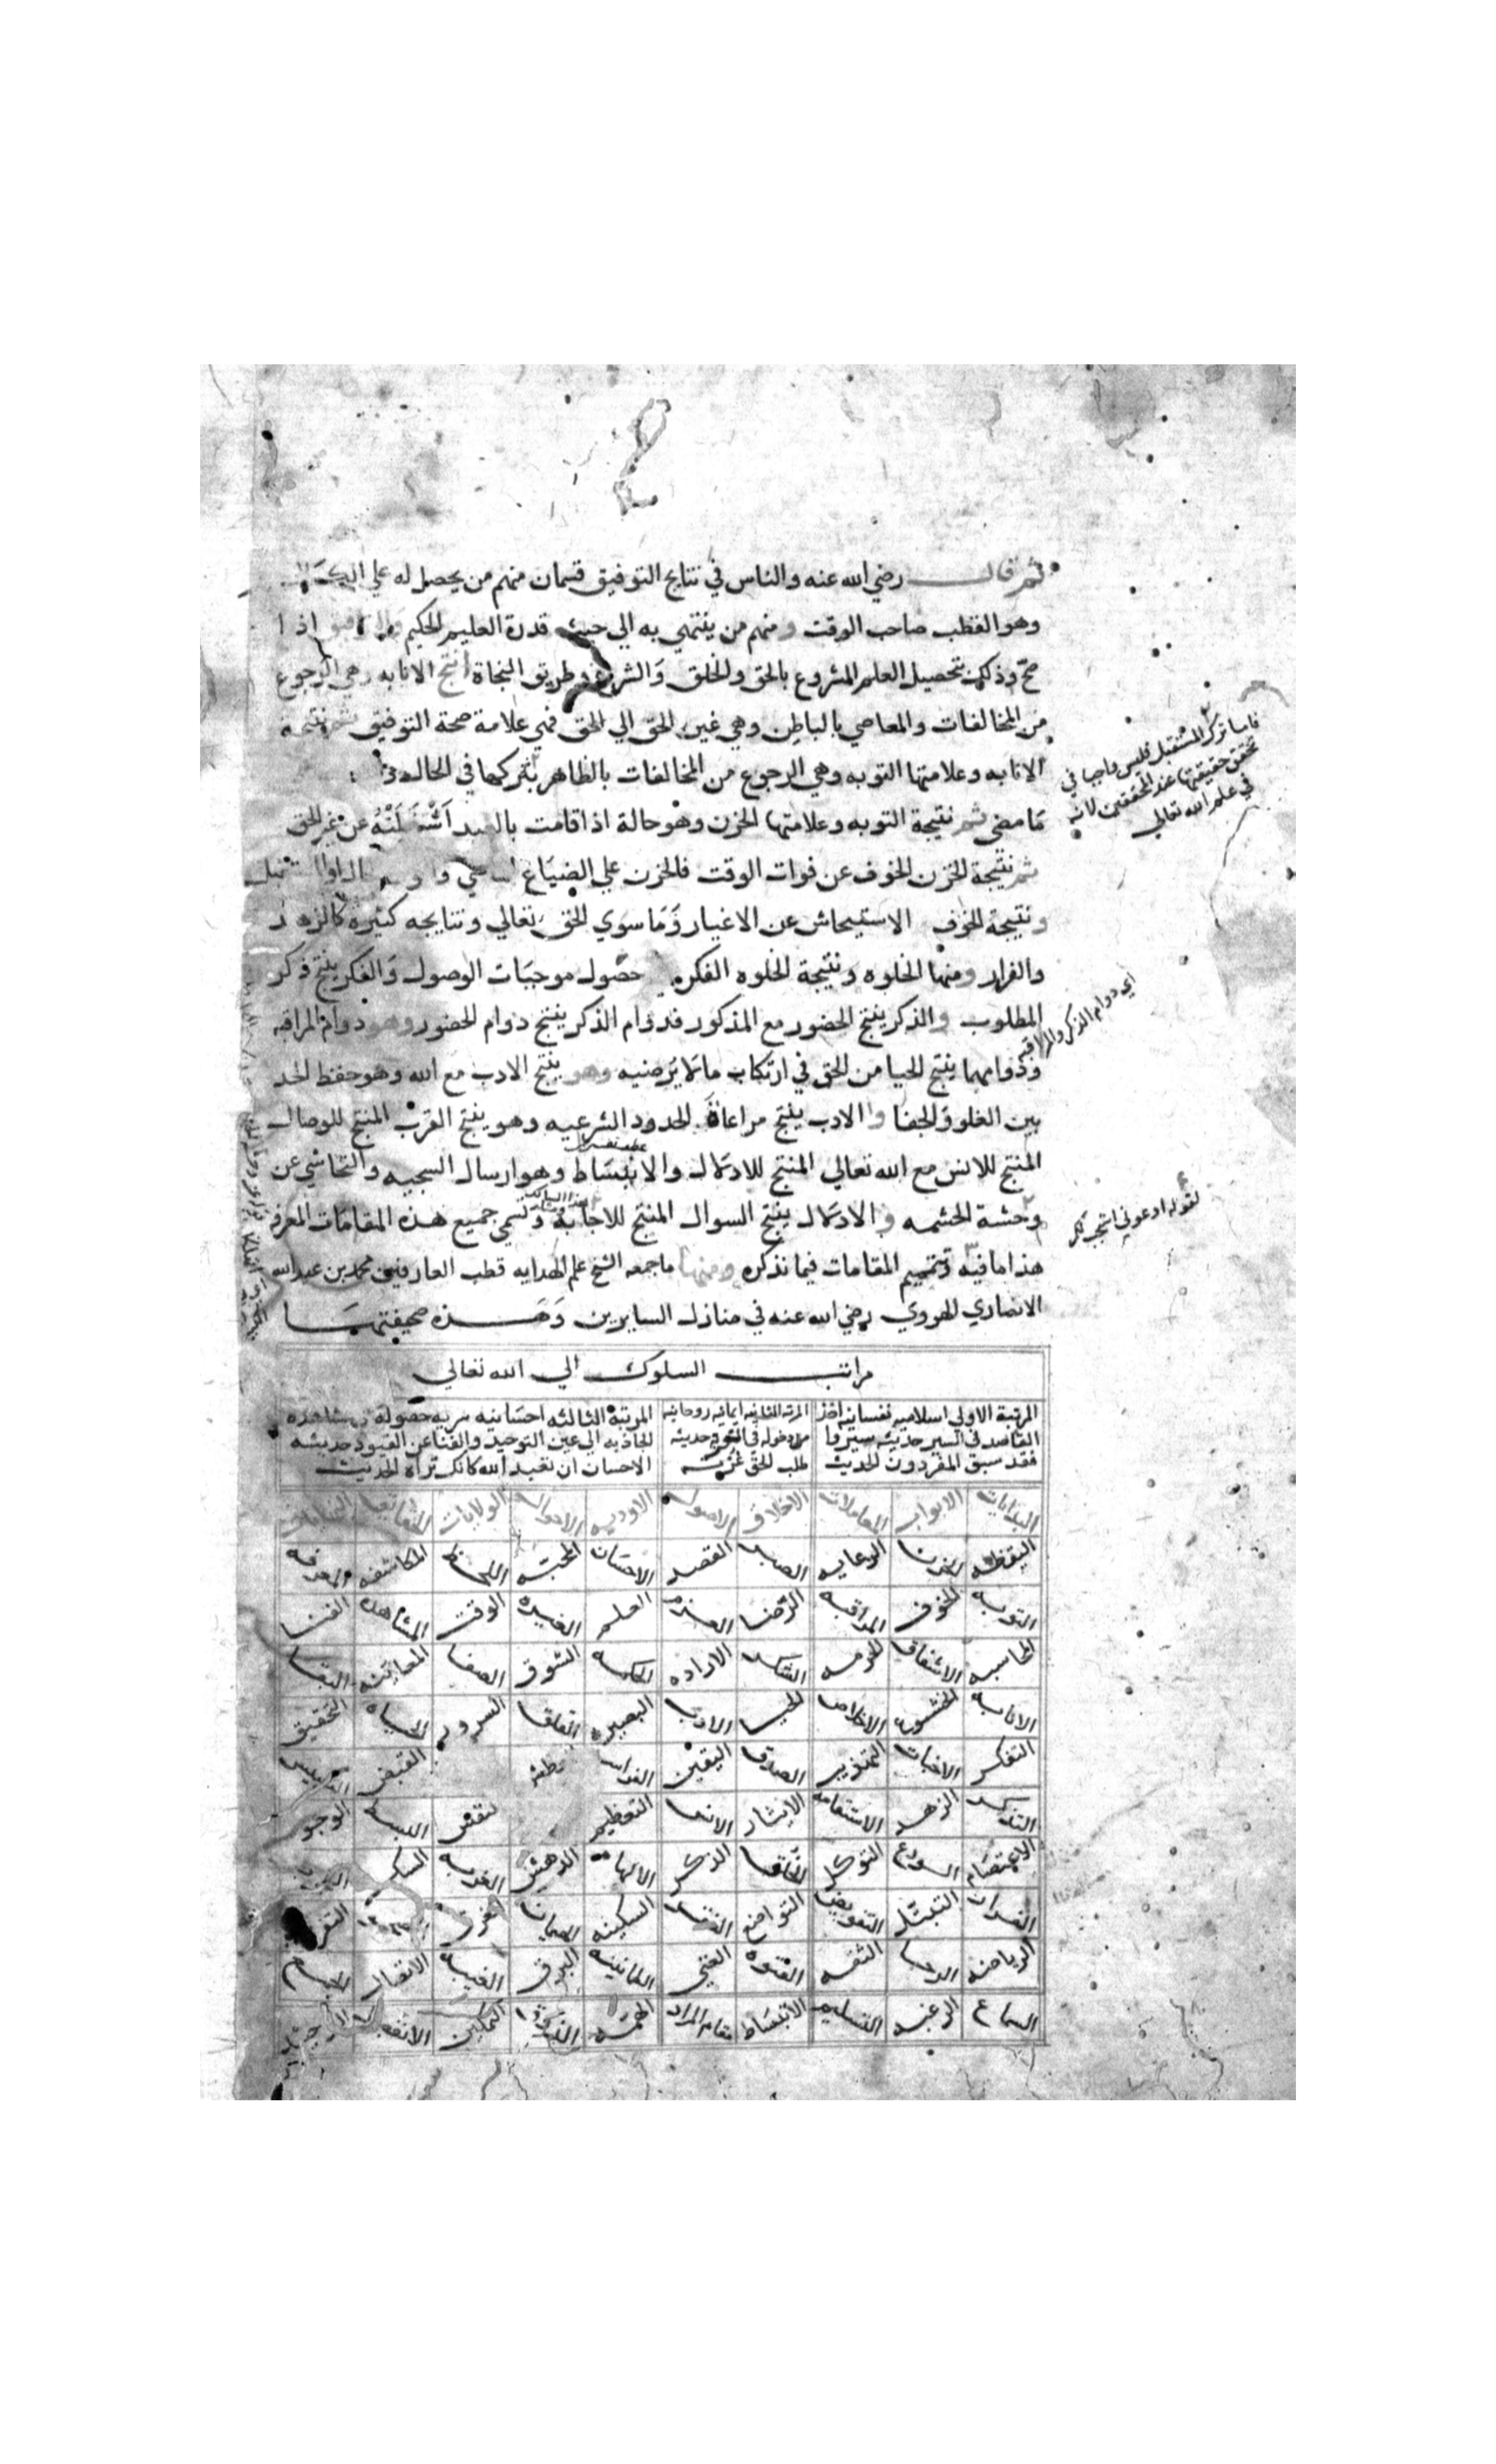 ثم قال رضي الله عنه والناس في نتايج التوفيق قسمان منهم من يحصل له علي الكمال
وهو القطب صاحب الوقت ومنهم من ينتهي به الي حيث قدرة العليم الحكيم والتوفيق اذا
صح وذلك بتحصيل العلم المشروع بالحق والخلق والشرع وطريق النجاة انتج الانابه وهي الرجوع
من المخالفات والمعاصي بالباطن وهي غير الحق الي الحق فهي علامة صحة التوفيق ثم نتيجة
الانابه وعلامتها التوبه وهي الرجوع من المخالفات بالظاهر بتركها في الحال
ما مضي ثم نتيجة التوبه وعلامتها الحزن وهو حالة اذا قامت بالعبد اشغلته عن غير الحق
ثم نتيجة الحزن الخوف عن فوات الوقت فالحزن علي الضياع
ونتيجة الخوف الاستيحاش عن الاغيار وما سوي الحق تعالي ونتايجه كثيره كالزهد
والفرار ومنها الخلوه ونتيجة الخلوه الفكره حصول موجبات الوصول والفكر ينتج ذكر
المطلوب والذكر ينتج الحضور مع المذكور فدوام الذكر ينتج دوام الحضور وهو دوام المراقبه
ودوامهما ينتج الحيا من الحق في ارتكاب ما لا يرضيه وهو ينتج الادب مع الله وهو حفظ الحد
بين الغلو والجفا والادب ينتج مراعاة الحدود الشرعيه وهو ينتج القرب المنتج للوصال
المنتج للانس مع الله تعالي المنتج للادلال والانبساط وهو ارسال السجيه والتحاشي عن
وحشة الحشمه والادلال ينتج السوال المنتج للاجابة وتسمي جميع هذه المقامات المعرفه
هذا ما فيه وتتميم المقامات فيما نذكره ومنها ما جمعه الشيخ علم الهدايه قطب العارفين محمد بن عبد الله
الانصاري الهروي رضي الله عنه في منازل السايرين وهذه صحيفتها
فاما ترك المستقبل فليس واجبا في
تحقق حقيقتها عند المحققين لانه
في علم الله تعالي
اي دوام الذكر والمراقبه
لقوله ادعوني استجب لكم
مراتب السلوك الي الله تعالي
المرتبة الاولي اسلاميه نفسانيه اخذ
القاصد في السير حديثه سيروا
فقد سبق المفردون الحديث
المرتبه الثانيه ايمانيه روحانيه
دخوله في حديثه
طلب الحق غربة
المرتبة الثالثه احسانيه سريه حصوله في مشاهده
الجاذبه الي عين التوحيد والفنا عن القيود حديثه
الاحسان ان تعبد الله كانك تراه الحديث
البدايات الابواب المعاملات الاخلاق الاصول الاوديه الاحوال الولايات الحقايق النهايات
اليقظه الحزن الرعايه الصبر القصد الاحسان المحبه اللحظ المكاشفه المعرفه
التوبه الخوف المراقبه الرضا العزم العلم الغيره الوقت المشاهده الفنا
المحاسبه الاشفاق الحرمه الشكر الاراده الحكمه الشوق الصفا المعاينه البقا
الانابه الخشوع الاخلاص الحيا الادب البصيره القلق السرور الحياه التحقيق
التفكر الاخبات التهذيب الصدق اليقين الفراسه العطش القبض التلبيس
التذكر الزهد الاستقامه الايثار الانس التعظيم النفس البسط الوجود
الاعتصام الورع التوكل الخلق الذكر الالهام الدهش الغربه السكر
الفرار التبتل التفويض التواضع الفقر السكينه الهيمان الغرق التفريد
الرياضه الرجا الثقه الفتوه الغني الطمانينه البرق الغيبه الاتصال الجمع
السماع الرغبه التسليم الانبساط مقام المراد الهمه الذوق التمكين الانفصال التوحيد